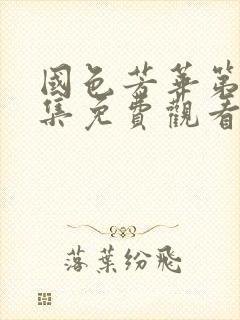 國色芳華第
集免費觀看
落葉紛飛